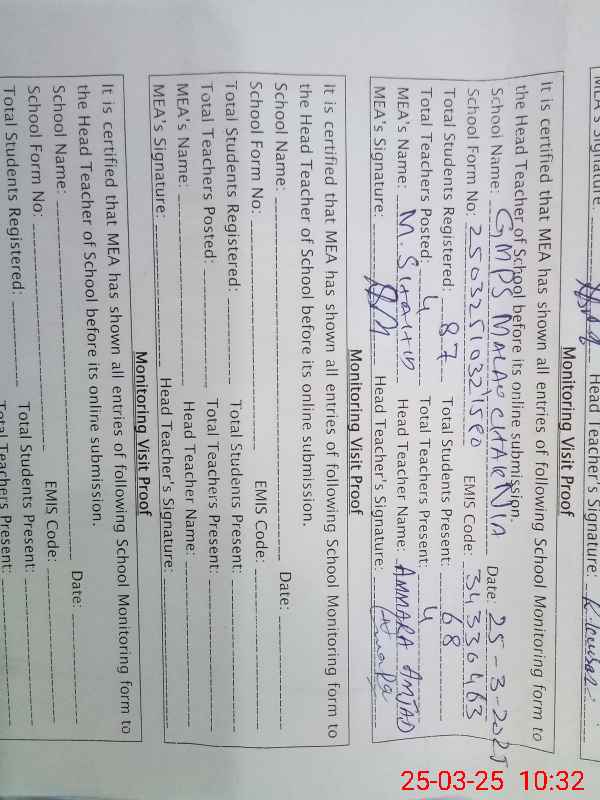 MEA's Signature: Head Teacher's Signature:
Monitoring Visit Proof
It is certified that MEA has shown all entries of following School Monitoring form to
the Head Teacher of School before its online submission.
School Name: GMPS Date: 25-3-2025
School Form No: EMIS Code: 34330463
Total Students Registered: 87 Total Students Present: 68
Total Teachers Posted: 4 Total Teachers Present: 4
MEA's Name: Head Teacher Name: AMMARA AMJAD
MEA's Signature: Head Teacher's Signature:
Monitoring Visit Proof
It is certified that MEA has shown all entries of following School Monitoring form to
the Head Teacher of School before its online submission.
School Name: Date:
School Form No: EMIS Code:
Total Students Registered: Total Students Present:
Total Teachers Posted: Total Teachers Present:
MEA's Name: Head Teacher Name:
MEA's Signature: Head Teacher's Signature:
Monitoring Visit Proof
It is certified that MEA has shown all entries of following School Monitoring form to
the Head Teacher of School before its online submission.
School Name: Date:
School Form No: EMIS Code:
Total Students Registered: Total Students Present:
Total Teachers Present:
25-03-25 10:32